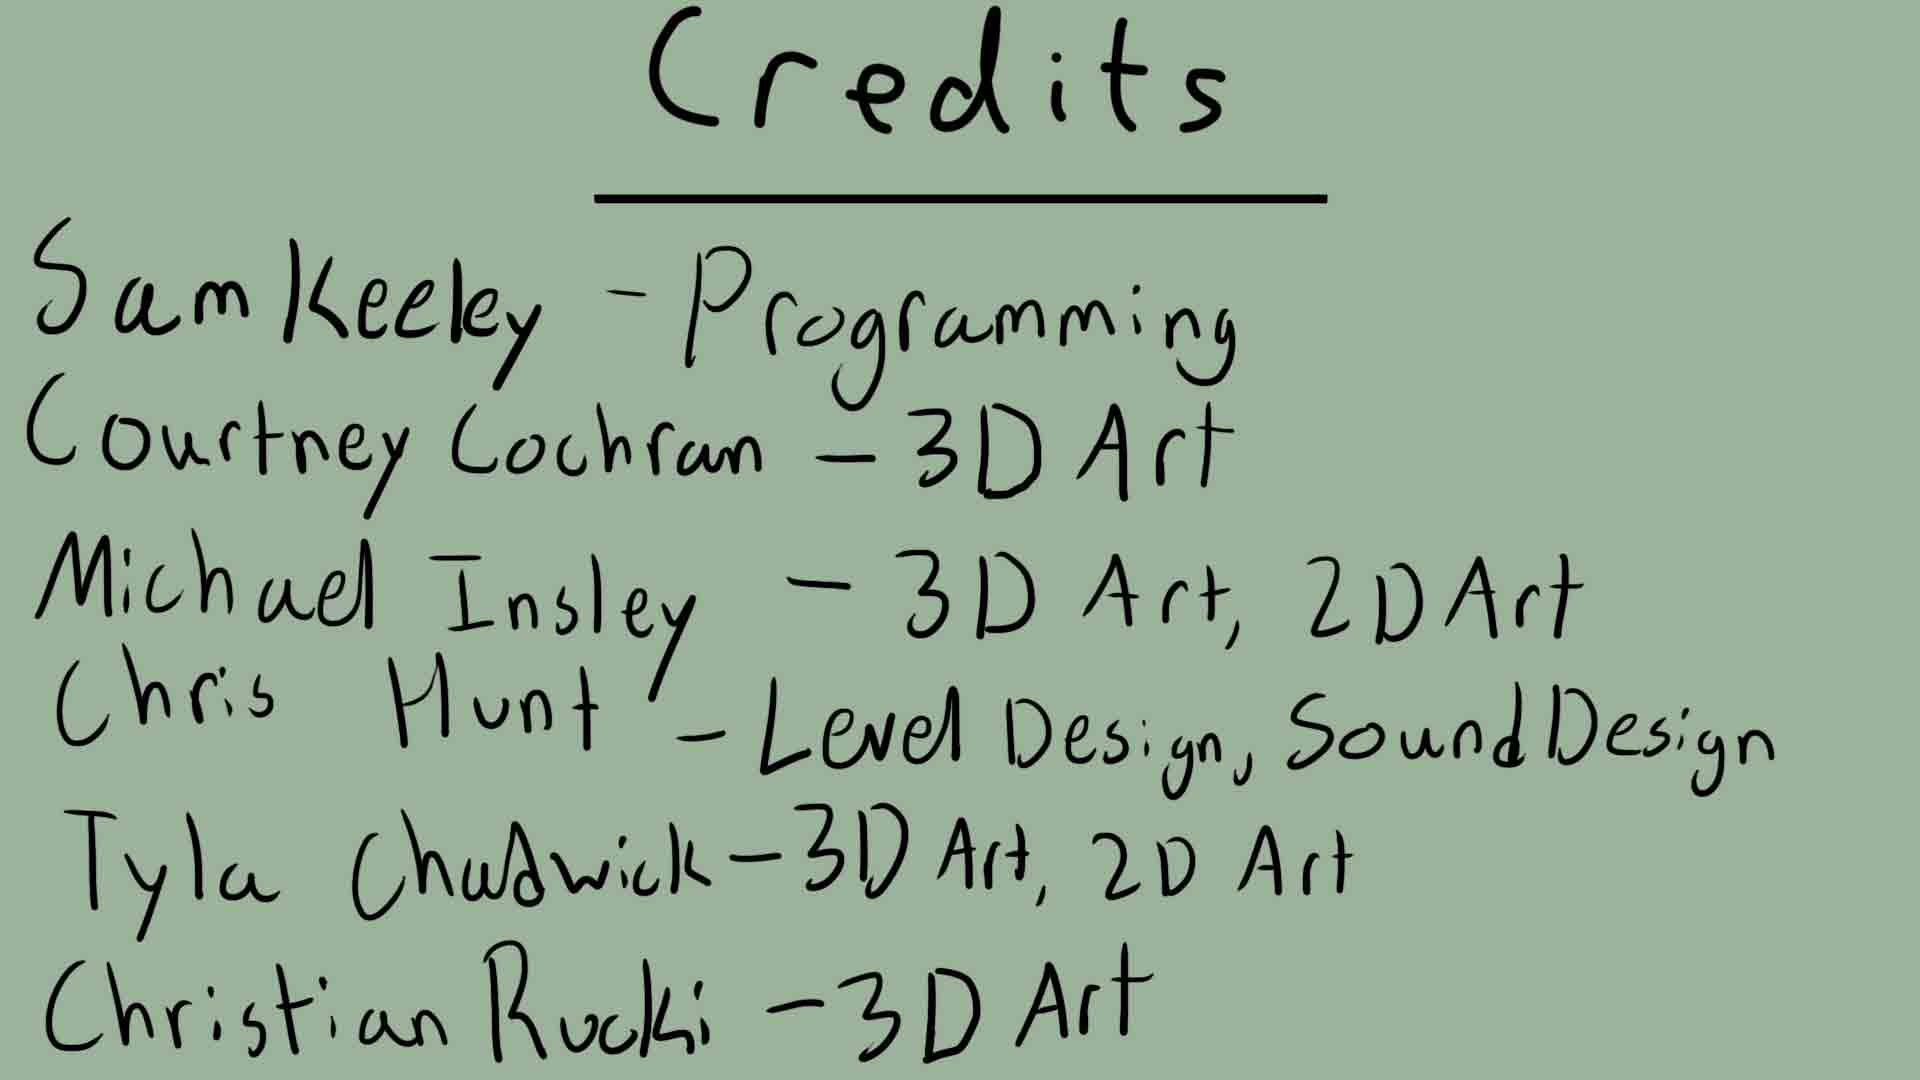 Credits
Sam Keeley - Programming
Courtney Cochran - 3D Art
Michael Insley - 3D Art, 2D Art
Chris Hunt - Level Design, Sound Design
Tyla Chadwick - 3D Art, 2D Art
Christian Rucki - 3D Art